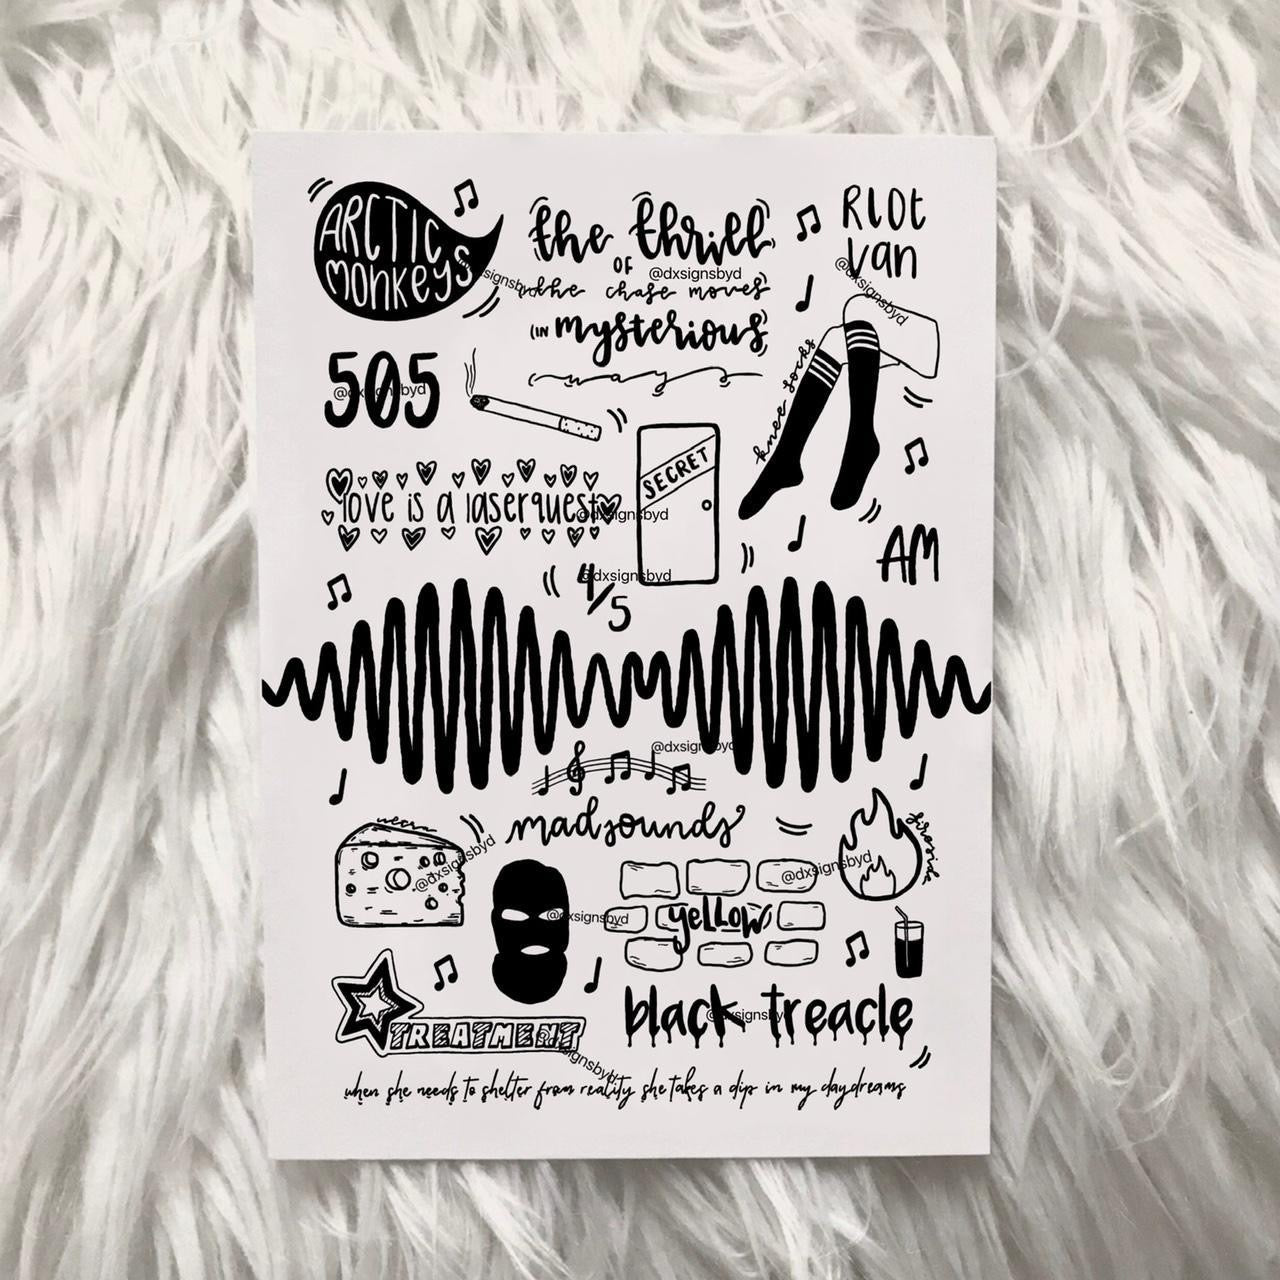 ARCTIC
monkeys
the thrill
OF
the chase moves
(IN mysterious
ways
RIOt
Van
@dxsignsbyd
@dxsignsbyd
505
@dxsignsbyd
knee socks
SECRET
love is a laserquest
@dxsignsbyd
AM
@dxsignsbyd
4/5
@dxsignsbyd
madsounds
@dxsignsbyd
@dxsignsbyd
fireside
@dxsignsbyd
yellow
TREATMENT
black treacle
@dxsignsbyd
@dxsignsbyd
when she needs to shelter from reality she takes a dip in my daydreams